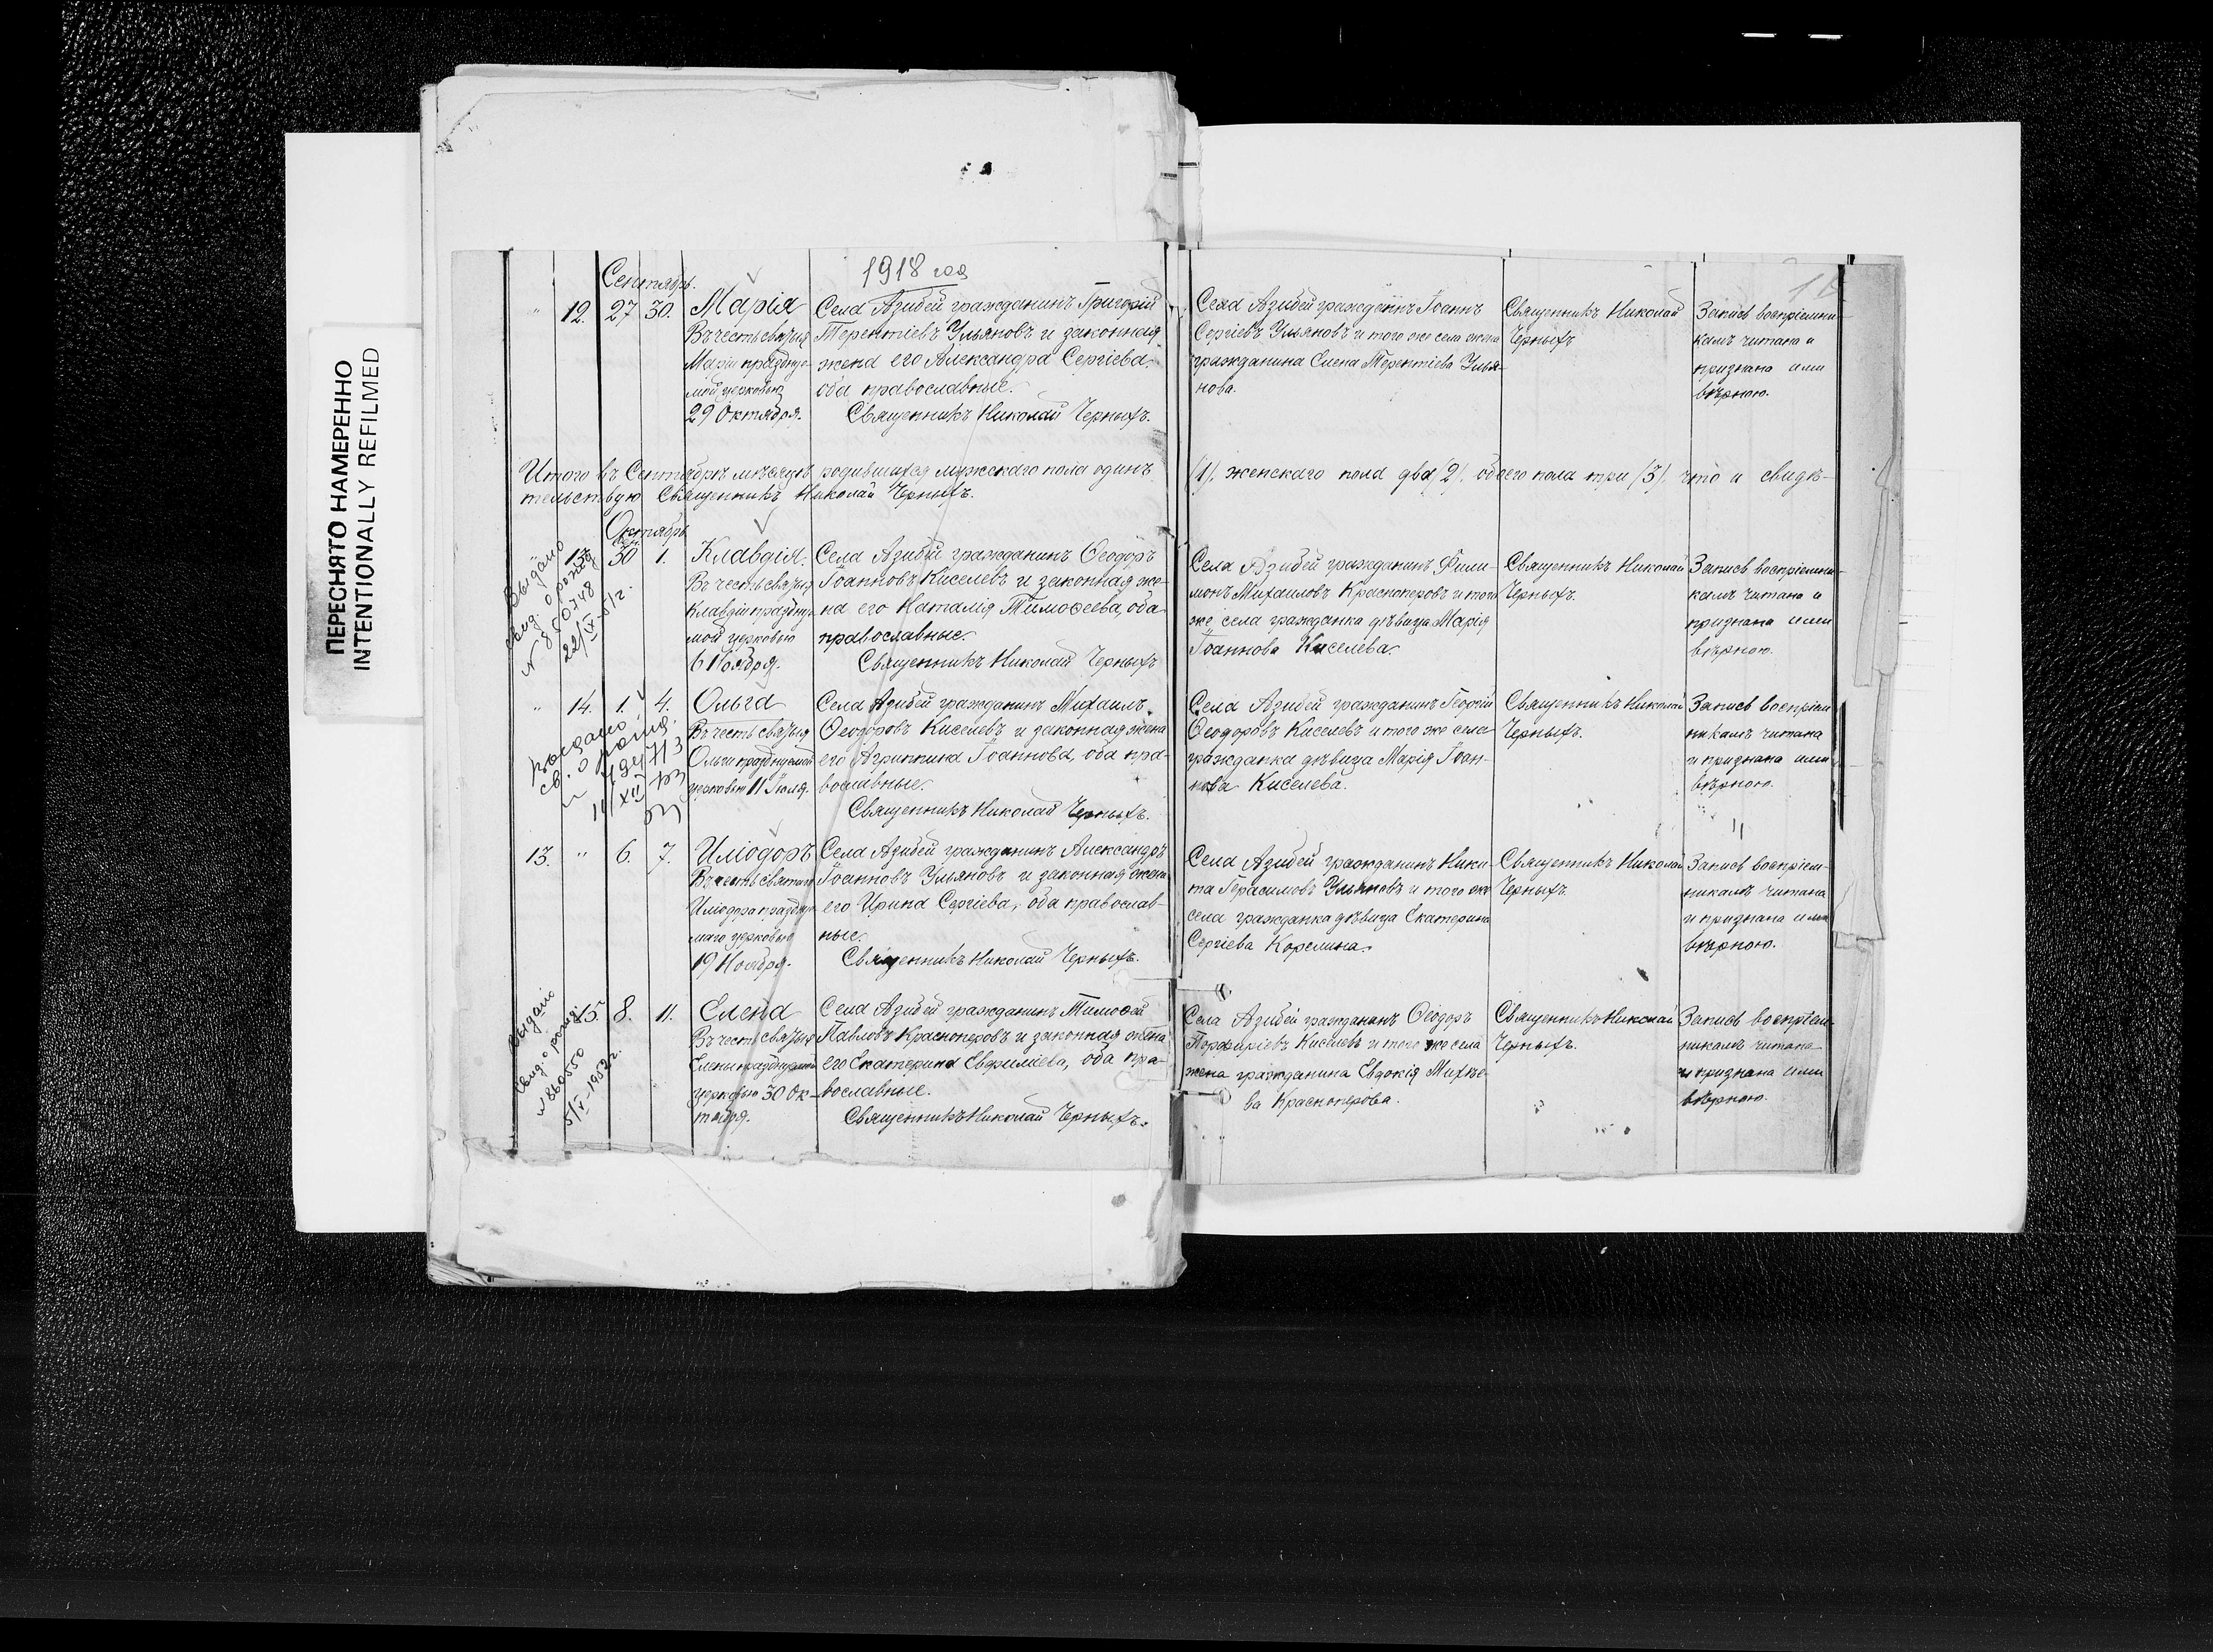 ПЕРЕСНЯТО НАМЕРЕННО
INTENTIONALLY REFILMED
1918 год
Сентябрь.
" 12. 27 30. Марія Села Азибей гражданинъ Григорій
Въ честь святыя Терентіевъ Ульяновъ и законная
Маріи празднуе- жена его Александра Сергіева,
мой церковью оба православные.
29 Октября. Священникъ Николай Черныхъ.
Села Азибей гражданинъ Іоаннъ Священникъ Николай Запись воспріемни-
Сергіевъ Ульяновъ и того же села жена Черныхъ камъ читана и
гражданина Елена Терентіева Улья- признана ими
нова. вѣрною.
Итого въ Сентябрѣ мѣсяцѣ родившихся мужскаго пола одинъ /1/, женскаго пола два /2/, обоего пола три /3/, что и свидѣ-
тельствую Священникъ Николай Черныхъ.
Октябрь
Сен.
" 13. 30 1. Клавдія. Села Азибей гражданинъ Ѳеодоръ
Въ честь святыя Іоанновъ Киселевъ и законная же-
Клавдіи празднуе- на его Наталія Тимоѳеева, оба
мой церковью православные.
6 Ноября. Священникъ Николай Черныхъ
Выдано
свид. о рожд
N 850748
22/IX-51г.
Села Азибей гражданинъ Фили- Священникъ Николай Запись воспріемни-
монъ Михаиловъ Красноперовъ и того Черныхъ. камъ читана и
же села гражданка дѣвица Марія признана ими
Іоаннова Киселева. вѣрною.
" 14. 1. 4. Ольга Села Азибей гражданинъ Михаилъ
Въ честь святыя Ѳеодоровъ Киселевъ и законная жена
Ольги празднуемой его Агриппина Іоаннова, оба пра-
церковью 11 Іюля. вославные.
Священникъ Николай Черныхъ.
Выдано
св. о рожд.
Села Азибей гражданинъ Георгій Священникъ Николай Запись воспріем
Ѳеодоровъ Киселевъ и того же села Черныхъ. никамъ читана
гражданка дѣвица Марія Іоан- и признана ими
нова Киселева. вѣрною.
13. " 6. 7. Иліодоръ Села Азибей гражданинъ Александръ
Въ честь святаго Іоанновъ Ульяновъ и законная жена
Иліодора празднуе его Ирина Сергіева, оба православ-
маго церковью ные.
19 Ноября. Священникъ Николай Черныхъ.
Села Азибей гражданинъ Ники- Священникъ Николай Запись воспріем-
та Герасимовъ Ульяновъ и того же Черныхъ. никамъ читана
села гражданка дѣвица Екатерина и признана ими
Сергіева Корелина. вѣрною.
15. 8. 11. Елена Села Азибей гражданинъ Тимоѳей
Въ честь святыя Павловъ Красноперовъ и законная жена
Елены празднуемой его Екатерина Евфиміева, оба пра-
церковью 30 Ок- вославные.
тября. Священникъ Николай Черныхъ.
Выдано
свид. о рожд
N 860550
5/X-1952г.
Села Азибей гражданинъ Ѳеодоръ Священникъ Николай Запись воспріем-
Порфиріевъ Киселевъ и того же села Черныхъ. никамъ читана
жена гражданина Евдокія Михѣе- и признана ими
ва Красноперова. вѣрною.